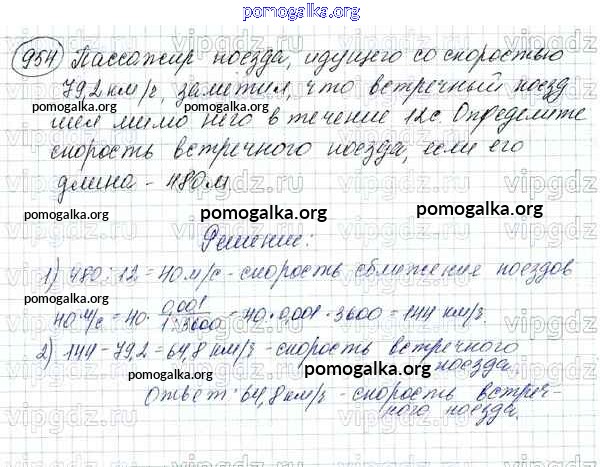 pomogalka.org
954 Пассажир поезда, идущего со скоростью
79,2 км/г, заметил, что встречный поезд
шел мимо него в течение 12с. Определите
скорость встречного поезда, если его
длина – 480м
Решение:
1) 480 : 12 = 40 м/с - скорость сближения поездов
40 м/с = 40 · 0,001 / 1:3600 = 40 · 0,001 · 3600 = 144 км/г
2) 144 – 79,2 = 64,8 км/г - скорость встречного
поезда.
Ответ: 64,8 км/г - скорость встреч-
ного поезда.
pomogalka.org
pomogalka.org
pomogalka.org
pomogalka.org
pomogalka.org
pomogalka.org
pomogalka.org
pomogalka.org
pomogalka.org
pomogalka.org
vipgdz.ru